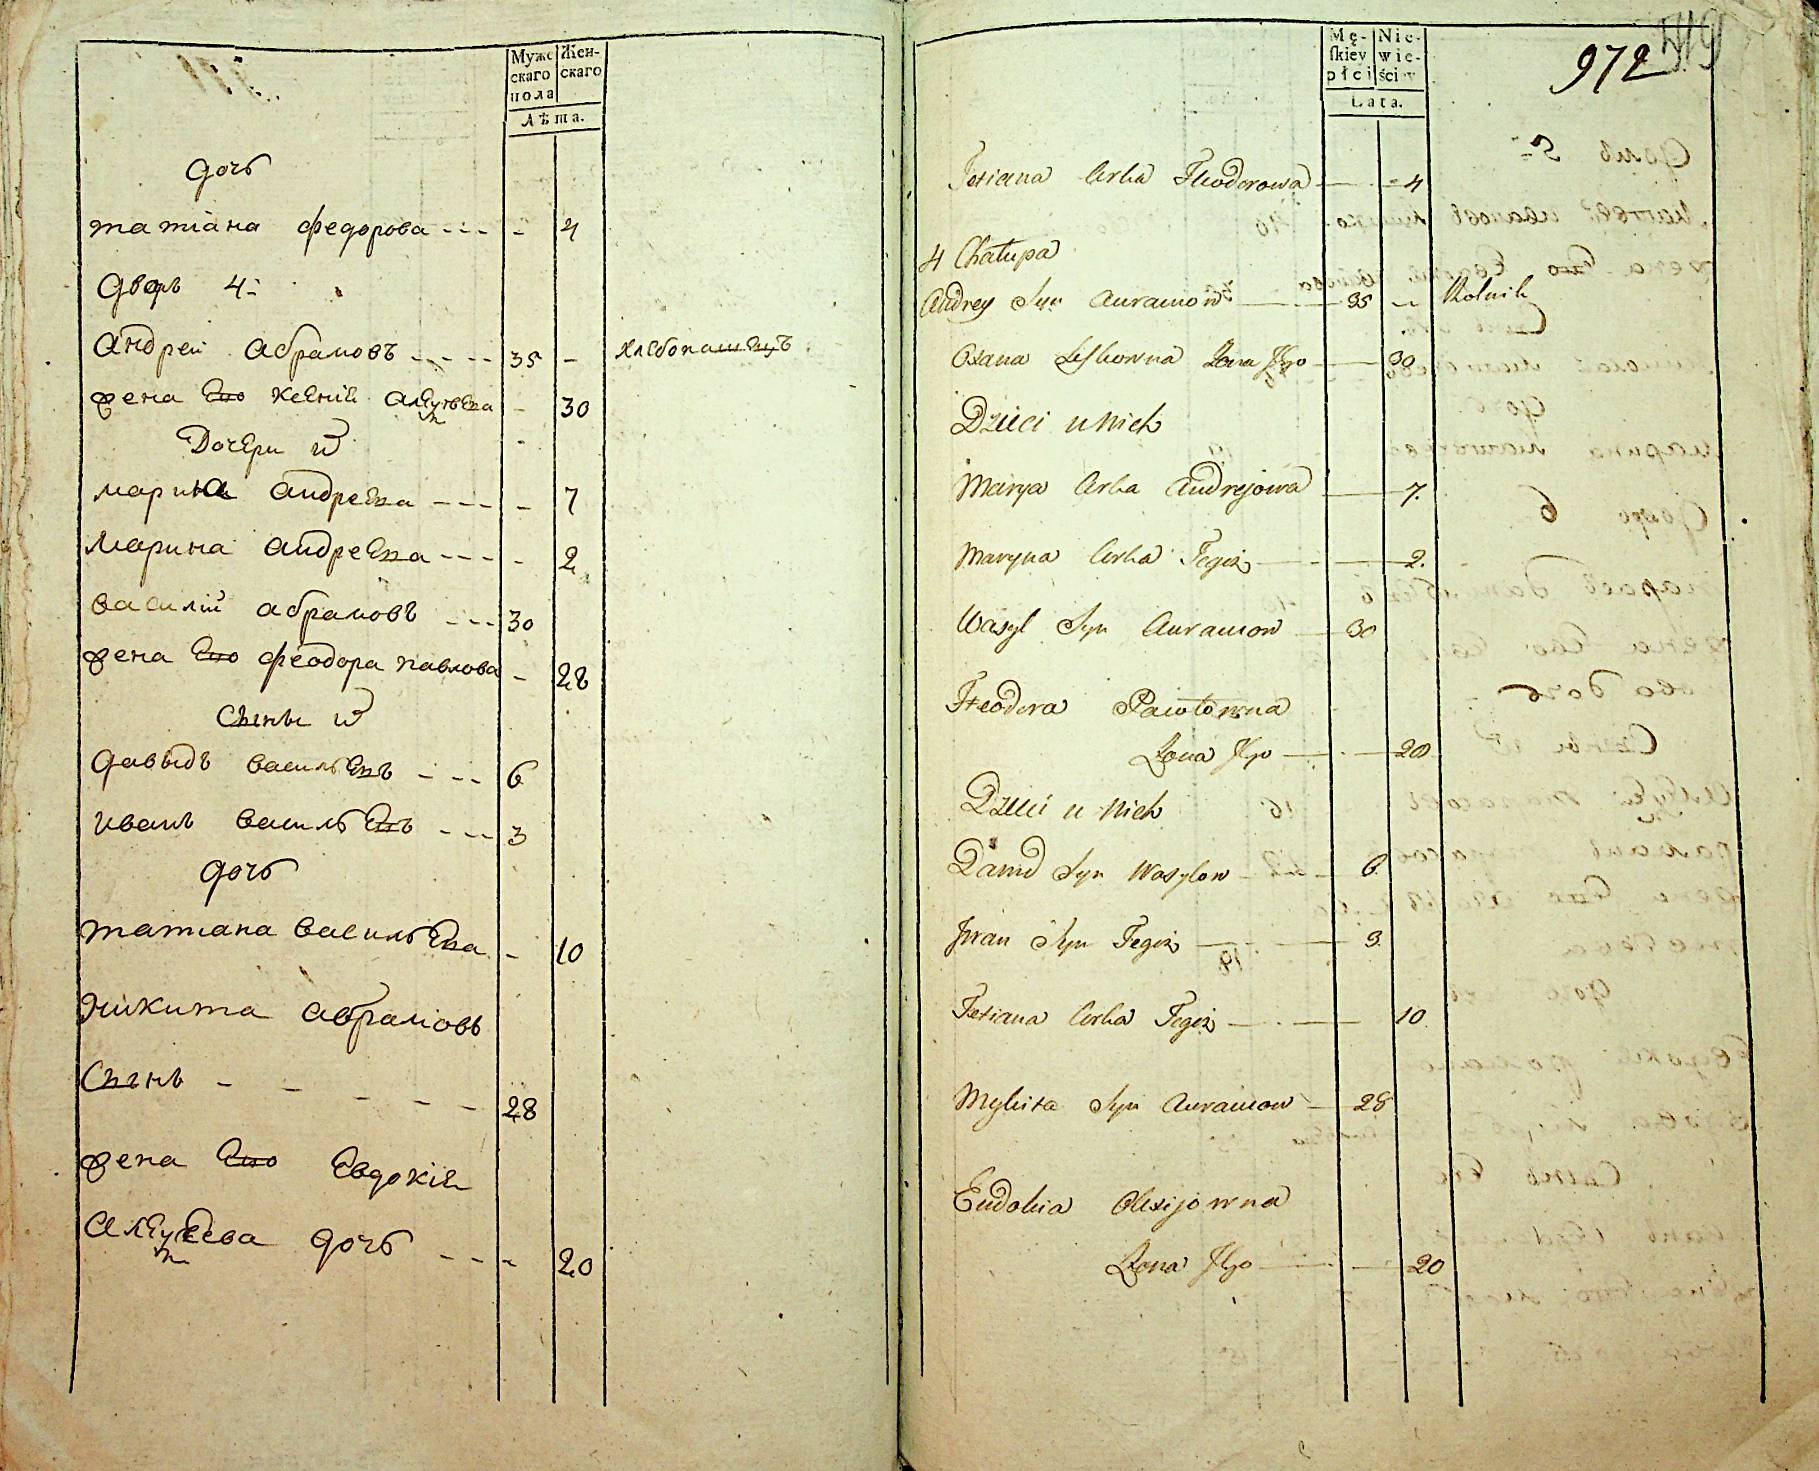 Мужс
скаго
пола
Жен-
скаго
Лѣта.
дочь
татіана федорова - - - - 4
дворъ 4й
андрей абрамовъ - - - - 35 - хлебопашецъ
жена Его ксеній алеуѯева - 30
Дочери их
мариа андреева - - - - 7
марина андреева - - - - 2
василій абрамовъ - - - 30
жена Его феодора павлова - 28
Сыны их
давыдъ васильевъ - - - 6
иванъ васильевъ - - - 3
дочь
татиана васильева - 10
никита абрамовъ
Сынъ - - - - - 28
жена Его Евдокій
алеуѯеева дочь - - - 20
Mę-
skiey
płci
Nie-
wie-
ści y
Lata.
972
Tetiana Corka Fheodorowa - - 4
4 Chałupa
Andrey Syn Auramow 35 - Rolnik
Oxana Żona Jego 30
Dzieci u Nich
Marya Corka Andrejowa 7.
Maryna Corka Tegoż 2.
Wasyl Syn Auramow 30
Fteodora Pawłowna
Żona Jego 28
Dzieci u Nich
Dawid Syn Wasylow 6
Jwan Syn Tegoż 3.
Tetiana Corka Tegoż 10
Mykita Syn Auramow 28
Eudokia Olexijowna
Żona Jego 20